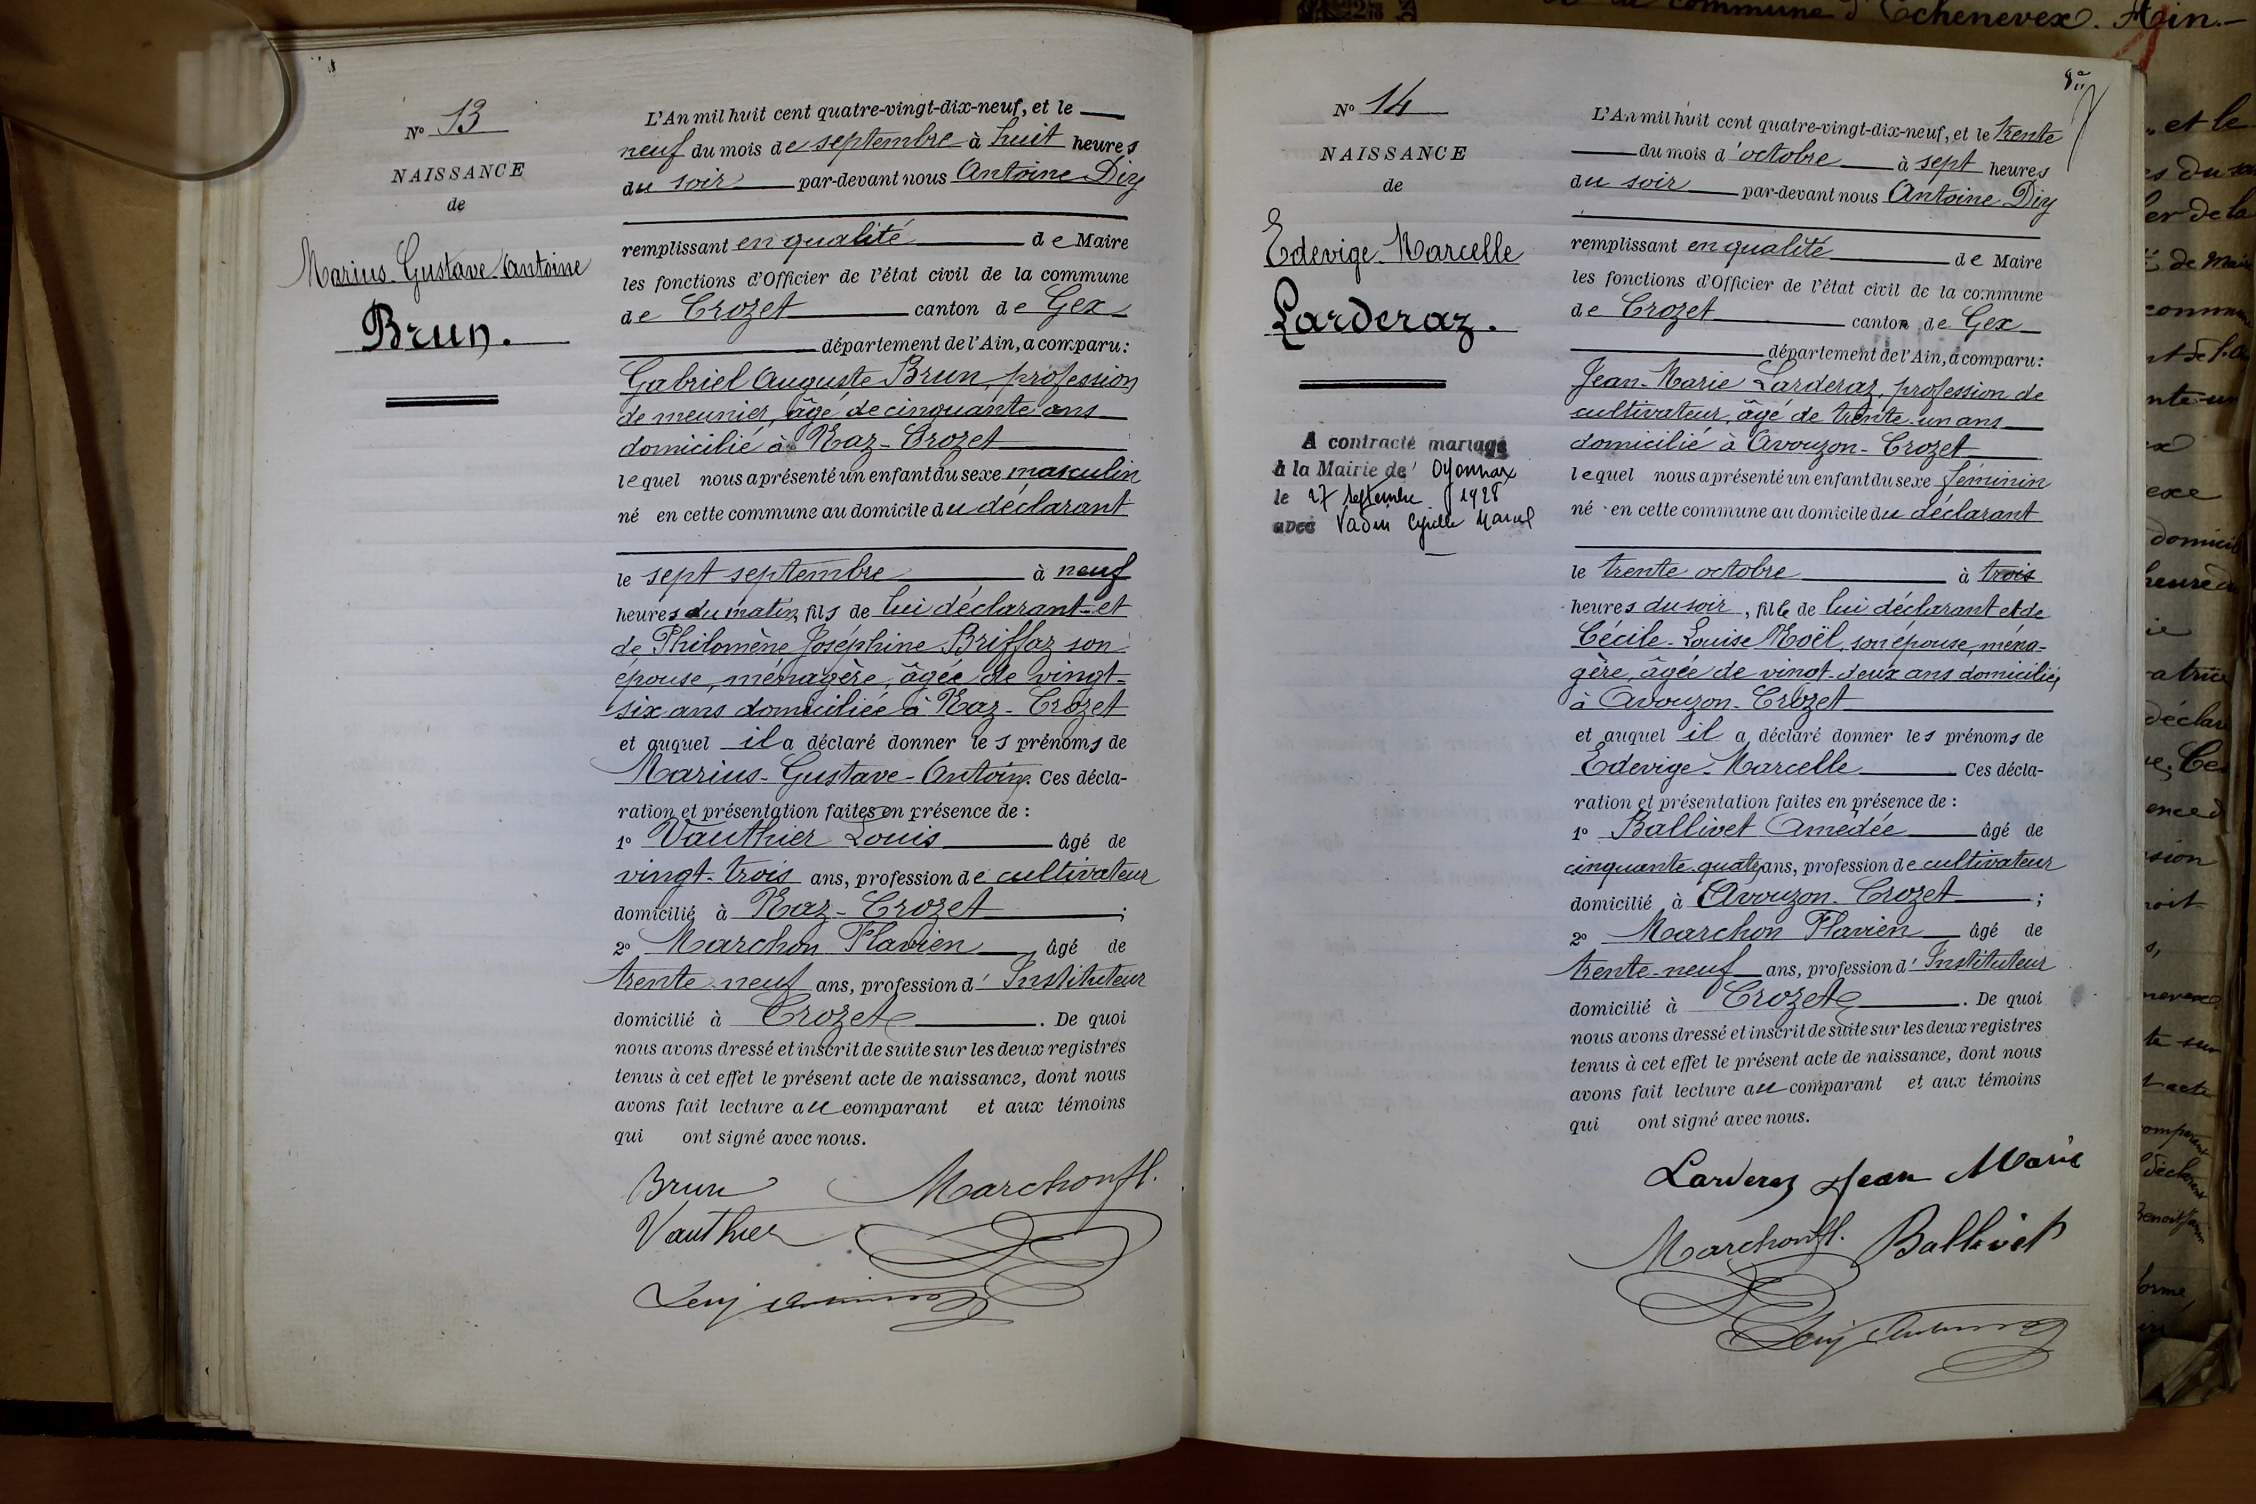 N° 13
NAISSANCE
de
Marius-Gustave-Antoine
Brun.
L'An mil huit cent quatre-vingt-dix-neuf, et le
neuf du mois de septembre à huit heures
du soir par-devant nous Antoine Diy
remplissant en qualité de Maire
les fonctions d'Officier de l'état civil de la commune
de Crozet canton de Gex
département de l'Ain, a comparu:
Gabriel Auguste Brun, profession
de meunier, âgé de cinquante ans
domicilié à Raz-Crozet
lequel nous a présenté un enfant du sexe masculin
né en cette commune au domicile du déclarant
le sept septembre à neuf
heures du matin, fils de lui déclarant et
de Philomène Joséphine Briffaz son
épouse, ménagère, âgée de vingt-
six ans domiciliée à Raz-Crozet
et auquel il a déclaré donner les prénoms de
Marius-Gustave-Antoine. Ces décla-
ration et présentation faites en présence de :
1° Vauthier Louis âgé de
vingt-trois ans, profession de cultivateur
domicilié à Raz-Crozet ;
2° Marchon Flavien âgé de
trente-neuf ans, profession d'Instituteur
domicilié à Crozet . De quoi
nous avons dressé et inscrit de suite sur les deux registres
tenus à cet effet le présent acte de naissance, dont nous
avons fait lecture au comparant et aux témoins
qui ont signé avec nous.
Brun Marchon fl.
Vauthier
N° 14
NAISSANCE
de
Edevige-Marcelle
Larderaz.
A contracté mariage
à la Mairie de Oyonnax
le 27 septembre 1928
avec Cyrille Marcel
L'An mil huit cent quatre-vingt-dix-neuf, et le trente
du mois d'octobre à sept heures
du soir par-devant nous Antoine Diy
remplissant en qualité de Maire
les fonctions d'Officier de l'état civil de la commune
de Crozet canton de Gex
département de l'Ain, a comparu:
Jean-Marie Larderaz, profession de
cultivateur, âgé de trente-un ans
domicilié à Avouzon-Crozet
lequel nous a présenté un enfant du sexe féminin
né en cette commune au domicile du déclarant
le trente octobre à trois
heures du soir, fille de lui déclarant et de
Cécile-Louise Noël, son épouse, ména-
gère, âgée de vingt-deux ans domiciliée
à Avouzon-Crozet
et auquel il a déclaré donner les prénoms de
Edevige-Marcelle Ces décla-
ration et présentation faites en présence de :
1° Ballivet Amédée âgé de
cinquante-quatre ans, profession de cultivateur
domicilié à Avouzon-Crozet ;
2° Marchon Flavien âgé de
trente-neuf ans, profession d'Instituteur
domicilié à Crozet . De quoi
nous avons dressé et inscrit de suite sur les deux registres
tenus à cet effet le présent acte de naissance, dont nous
avons fait lecture au comparant et aux témoins
qui ont signé avec nous.
Larderaz Jean Marie
Marchon fl. Ballivet
commune d'Echenevex. Ain.-